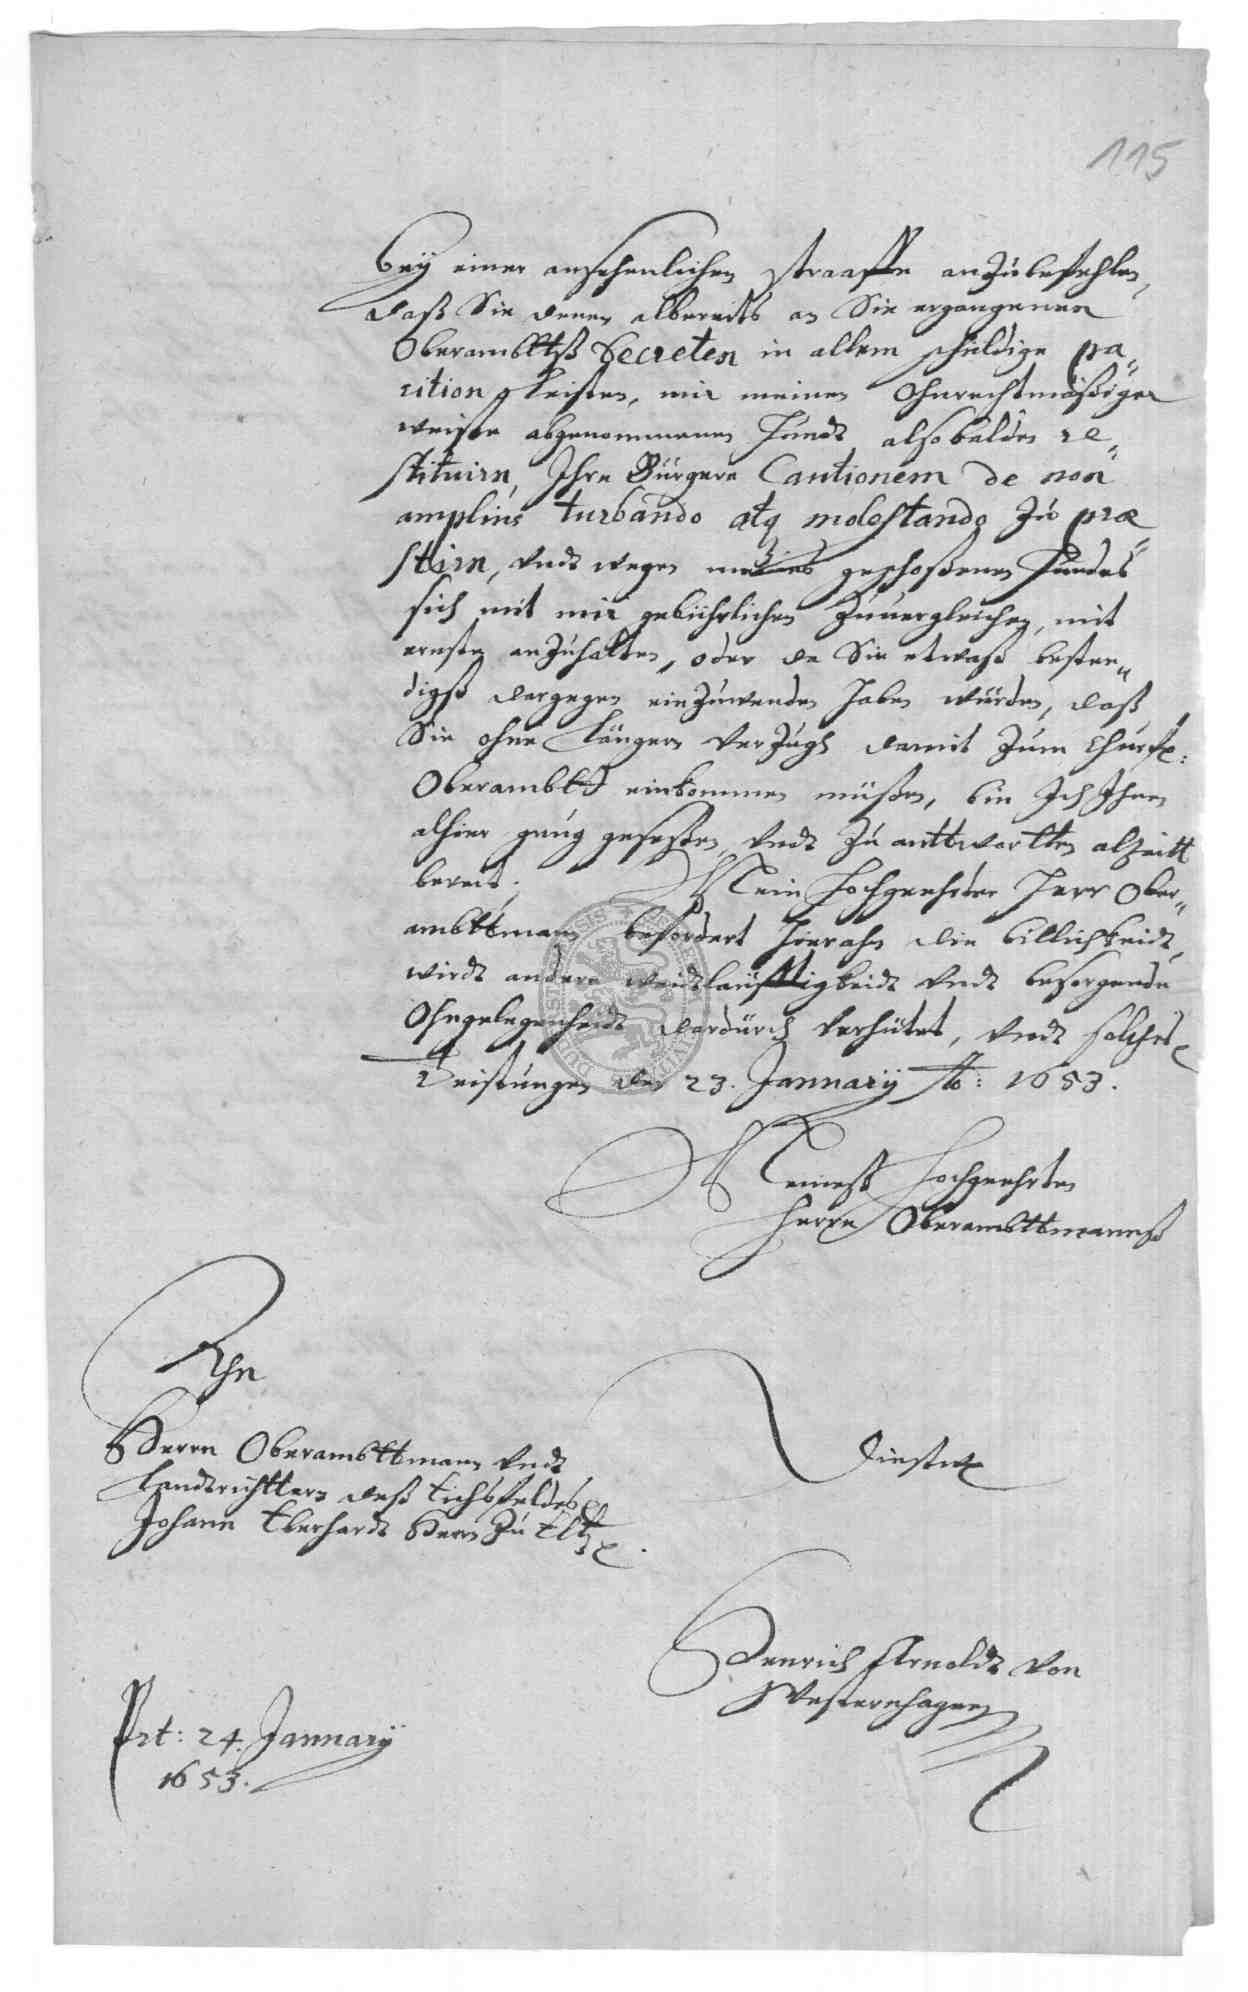 115
bey einer ansehenlichen straaffe anzubefehlen,
daß Sie denen albereits an Sie ergangenen
Oberambtß Decreten in allem schuldige pa„
rition leisten, mir meinen Ohnrechtmäßiger
weiße abgenommenen Hundt alsobalden re„
stituirn, Ihre Bürgere Cautionem de non
amplius turbando atq molestando zu præ„
stirn, vndt wegen meines geschoßenen Hundes
sich mit mir gebührlichen zuuergleichen, mit
ernste anzuhalten, oder da Sie etwaß besten„
digß dargegen einzuwenden haben würden, daß
Sie ohne längern Verzugh damit zum Churfr:
Oberambtt einkommen müßen, bin Ich Ihnen
alhier gnug geseßen, vndt zu anttwortten alzeitt
bereit. Mein hochgeehrter Herr Ober„
ambttmann befordert hierahn die billichkeidt,
wirdt andere weidtläufftigkeidt vndt besorgende
Ohngelegenheidt dardurch verhütet, vndt solches
Teistungen den 23. January Ao: 1653.
Meineß hochgeehrten
Herrn Oberambttmannß
Ahn
Herrn Oberambttmann vndt
Landtrichttern deß Eichßfeldes
Johann Eberhardt Herrn zu Eltz
Dienstw
Henrich Arnoldt von
Westernhagen
Prt: 24. January
1653.